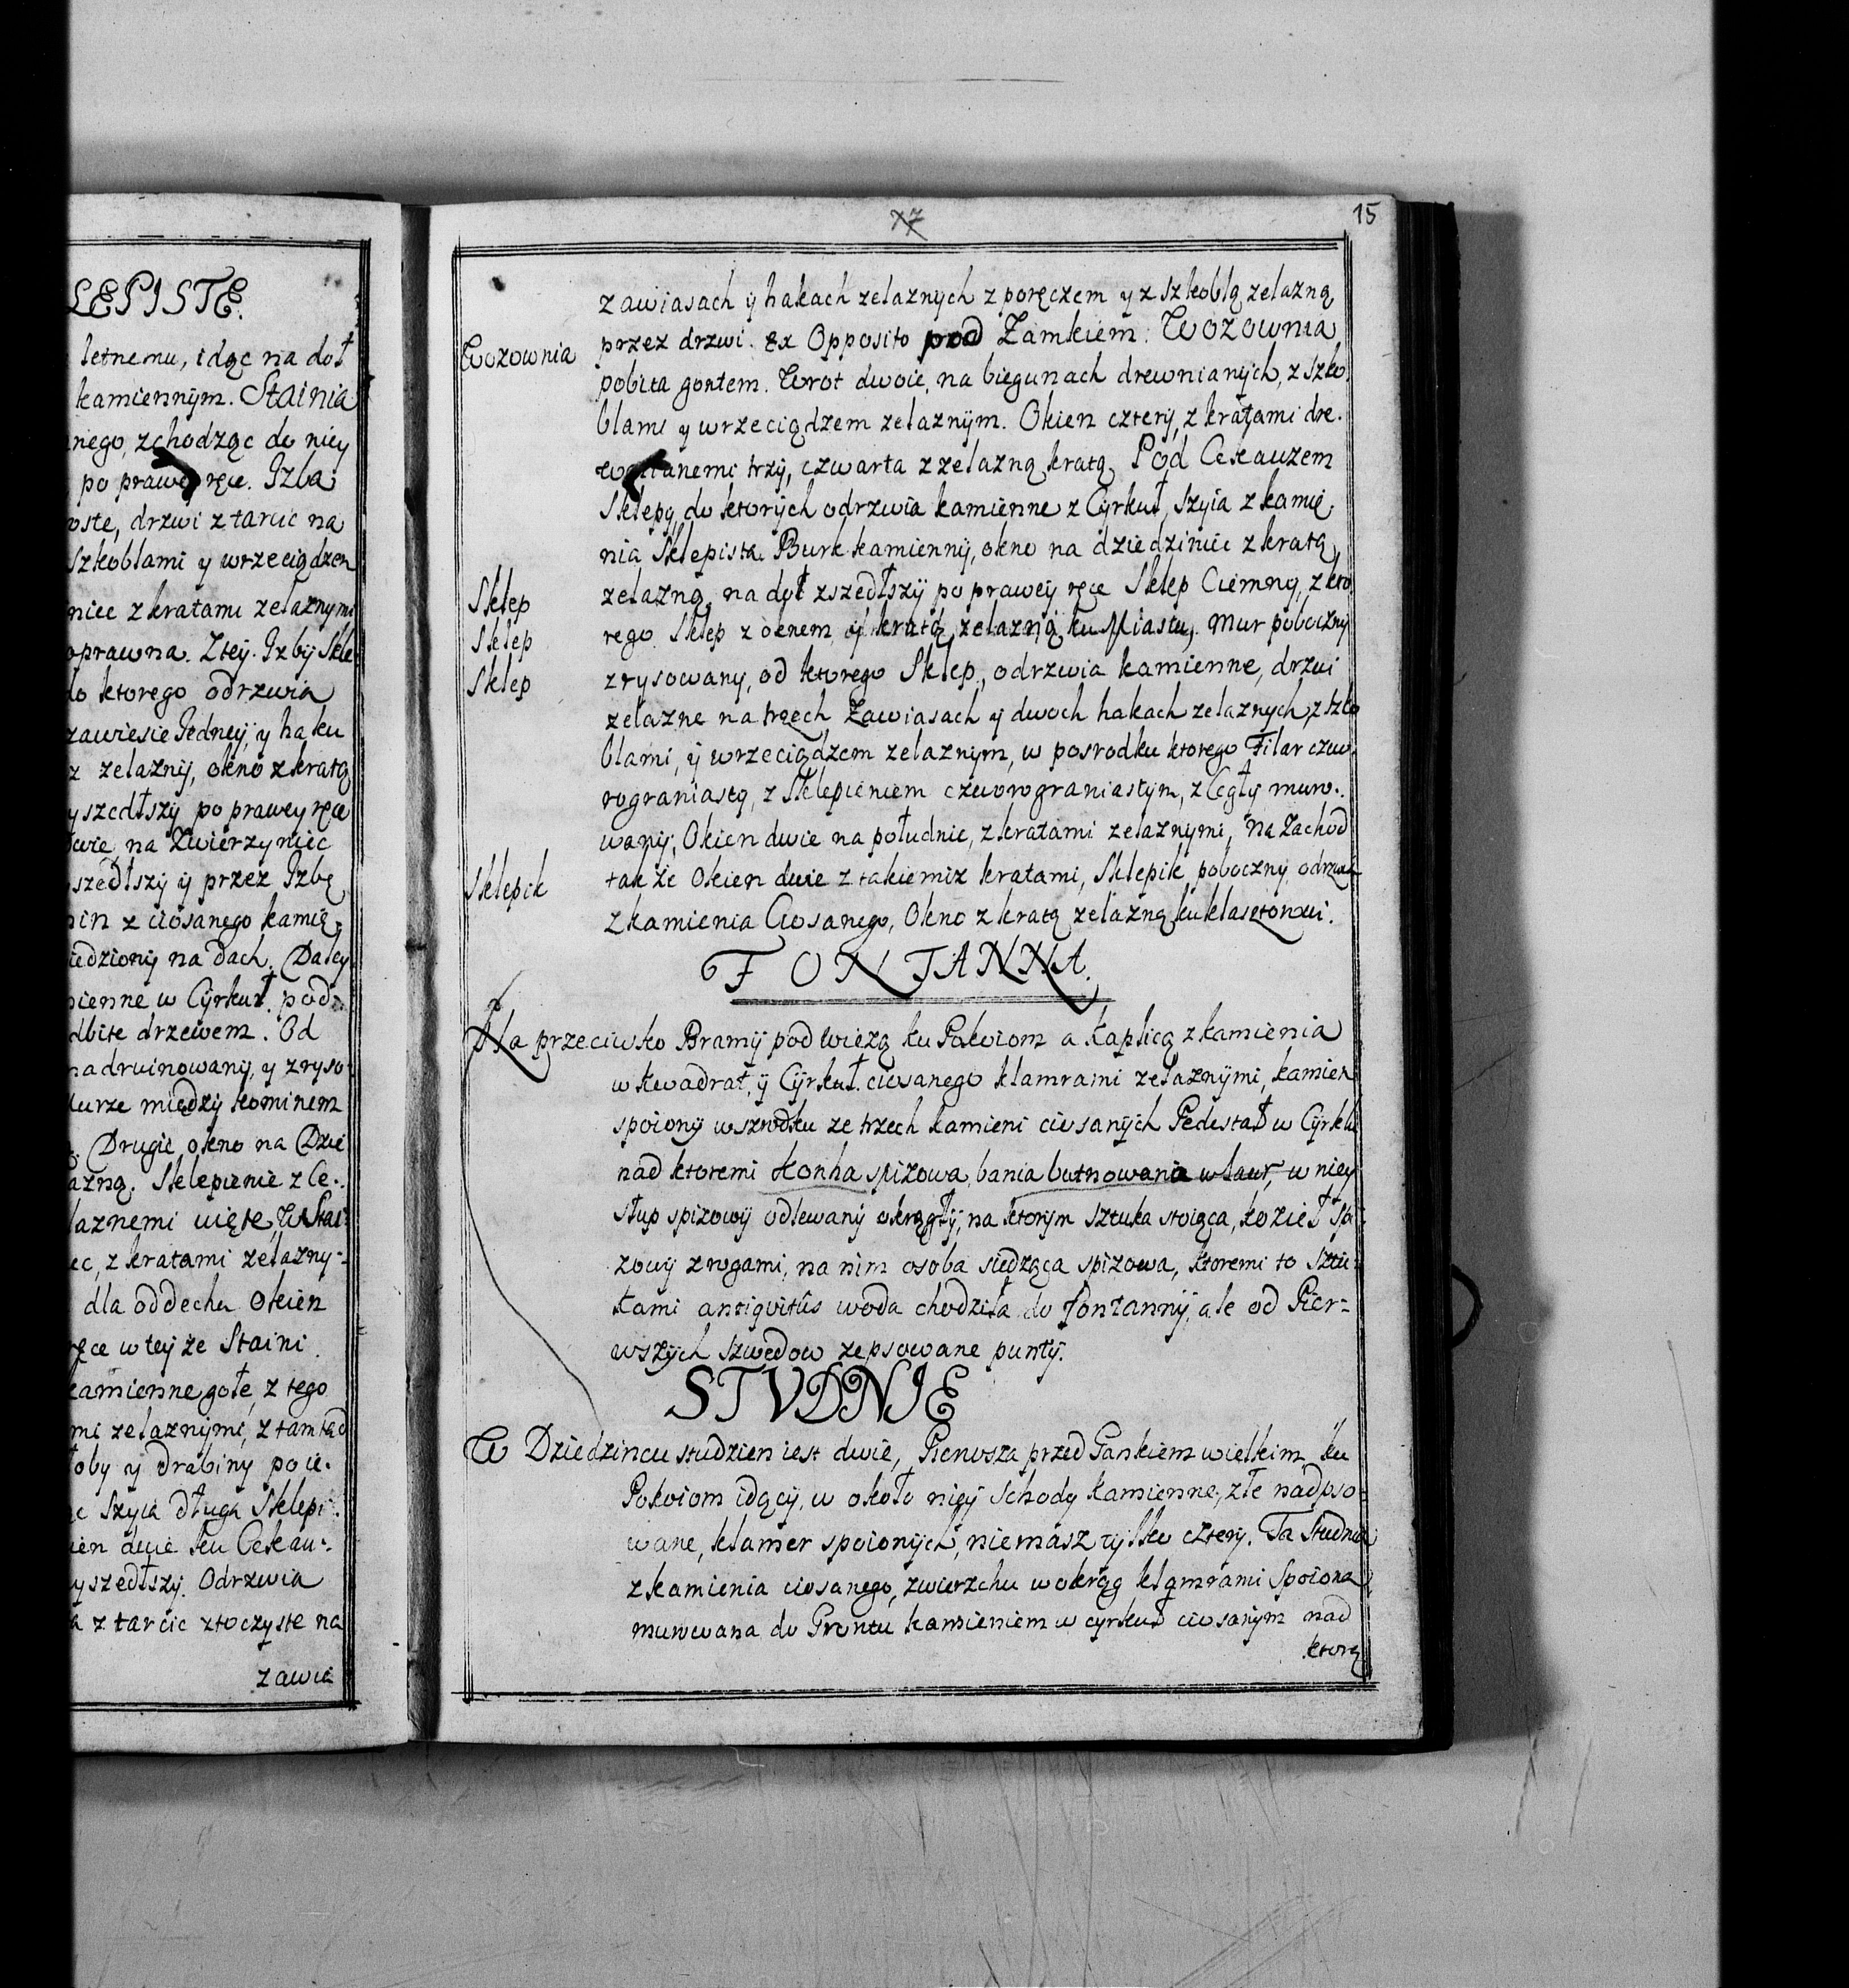 LEPISTE.
letnemu, idąc na doł
kamiennym. Stainia
nego, zchodząc do niey
po prawey ręce. Izba
oste, drzwi z tarcic na
szkoblami y wrzeciądzem
niec z kratami zelaznymi
oprawna. Z tey Izby Skle
do ktorego odrzwia
zawiesie Jedney, y haku
z zelazny, okno z kratą
yszedłszy po prawey ręce
dwie na Zwierzyniec
szedłszy y przez Izbę
min z ciosanego kamię
iedziony na dach. Daley
mienne w Cyrkuł pod
dbite drzewem. Od
nadruinowany, y zryso
Murze między kominem
Drugie okno na Dzie
azną. Sklepienie z Ce
laznemi uięte, W Stai
ec, z kratami zelazny
dla oddechu Okien
ręce w tey że Staini.
kamienne gołe, z tego
mi zelaznymi, z tamtąd
łoby y drabiny po ie
e szyia długa Sklepi
ien dwie ku Cekau
yszedłszy. Odrzwia
a z tarcic ztoczyste na
zawia
17
15
zawiasach y hakach zelaznych z poręczem y z szkoblą zelazną
Wozownia
przez drzwi. Ex Opposito pod Zamkiem. Wozownia
pobita gontem. Wrot dwoie, na biegunach drewnianych, z szko
blami y wrzeciądzem zelaznym. Okien cztery, z kratami dre
wnianemi trzy, czwarta z zelazną kratą. Pod Cekauzem
Sklepy, do ktorych odrzwia kamienne z Cyrkuł, szyia z kamię
nia Sklepista. Burk kamienny, okno na dziedziniec z kratą
Sklep
zelazną, na doł zszedłszy po prawey ręce Sklep Ciemny, z kto
Sklep
rego Sklep z oknem y kratą zelazną ku Miastu. Mur poboczny
Sklep
zrysowany, od ktorego Sklep, odrzwia kamienne, drzwi
zelazne na trzech Zawiasach y dwoch hakach zelaznych, z szko
blami, y wrzeciądzem zelaznym, w posrodku ktorego Filar czwo
rograniasty, z Sklepieniem czworograniastym, z Cegły muro
wany, Okien dwie na południe, z kratami zelaznymi, na Zachod
Sklepik
także Okien dwie z takiemiz kratami, Sklepik poboczny, odrzwia
z kamienia Ciosanego, Okno z kratą zelazną ku klasztorowi.
FONTANNA.
Na przeciwko Bramy pod wiezą ku Pokoiom a Kaplicą z kamienia
w kwadrat, y Cyrkuł ciosanego klamrami zelaznymi, kamien
spoiony wszrodku ze trzech kamieni ciosanych Pedestał w Cyrkuł
nad ktoremi Konha spizowa, bania butnowana w laur, w niey
słup spizowy odlewany okrągły, na ktorym sztuka stoiąca, kozieł spi
zowy z rogami, na nim osoba siedząca spizowa, ktoremi to sztu
kami antiqvitus woda chodziła do fontanny, ale od Pier=
wszych szwedow zepsowane punty.
STVDNIE
W Dziedzincu studzien iest dwie, Pierwsza przed Gankiem wielkim ku
Pokoiom idący, w około niey Schody kamienne, złe nadpso
wane, klamer spoionych, niemasz tylko cztery. Ta Studnia
z kamienia ciosanego, zwierzchu wokrąg klamrami spoiona
murowana do Gruntu kamieniem w cyrkuł ciosanym nad
ktorą